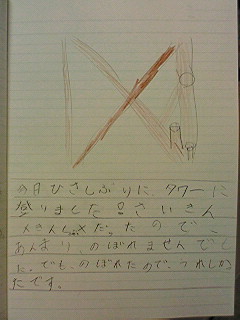 今日ひさしぶりに、タワーに
登りました。さいきん
んきんしメだったので、
あんまり、のぼれませんでし
た。でも、のぼれたので、うれしかっ
たです。